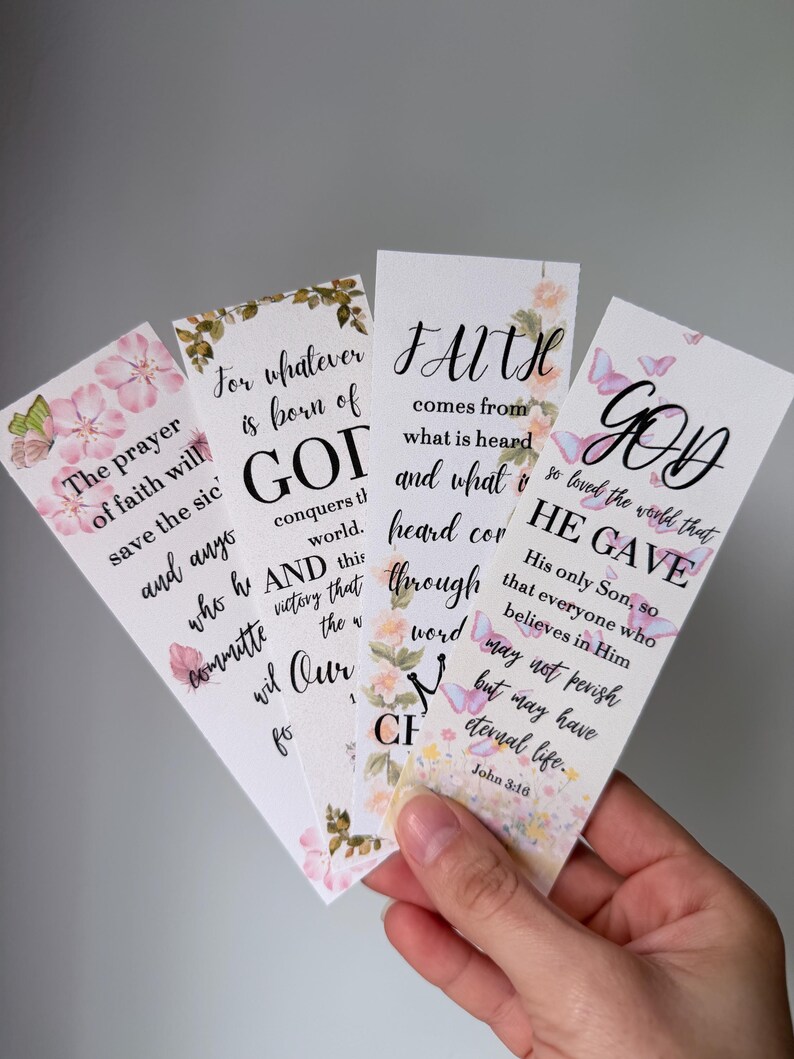 The prayer
of faith will
save the sic
and anyo
who h
committe
wil
fo
For whatever
is born of
GOD
conquers th
world.
AND this
victory that
the w
Our
1
FAITH
comes from
what is heard
and what i
heard co
through
word
CH
GOD
so loved the world that
HE GAVE
His only Son, so
that everyone who
believes in Him
may not perish
but may have
eternal life.
John 3:16